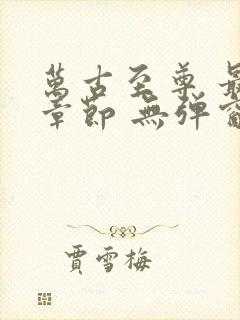 萬古至尊 最
章節 無彈窗
賈雪梅